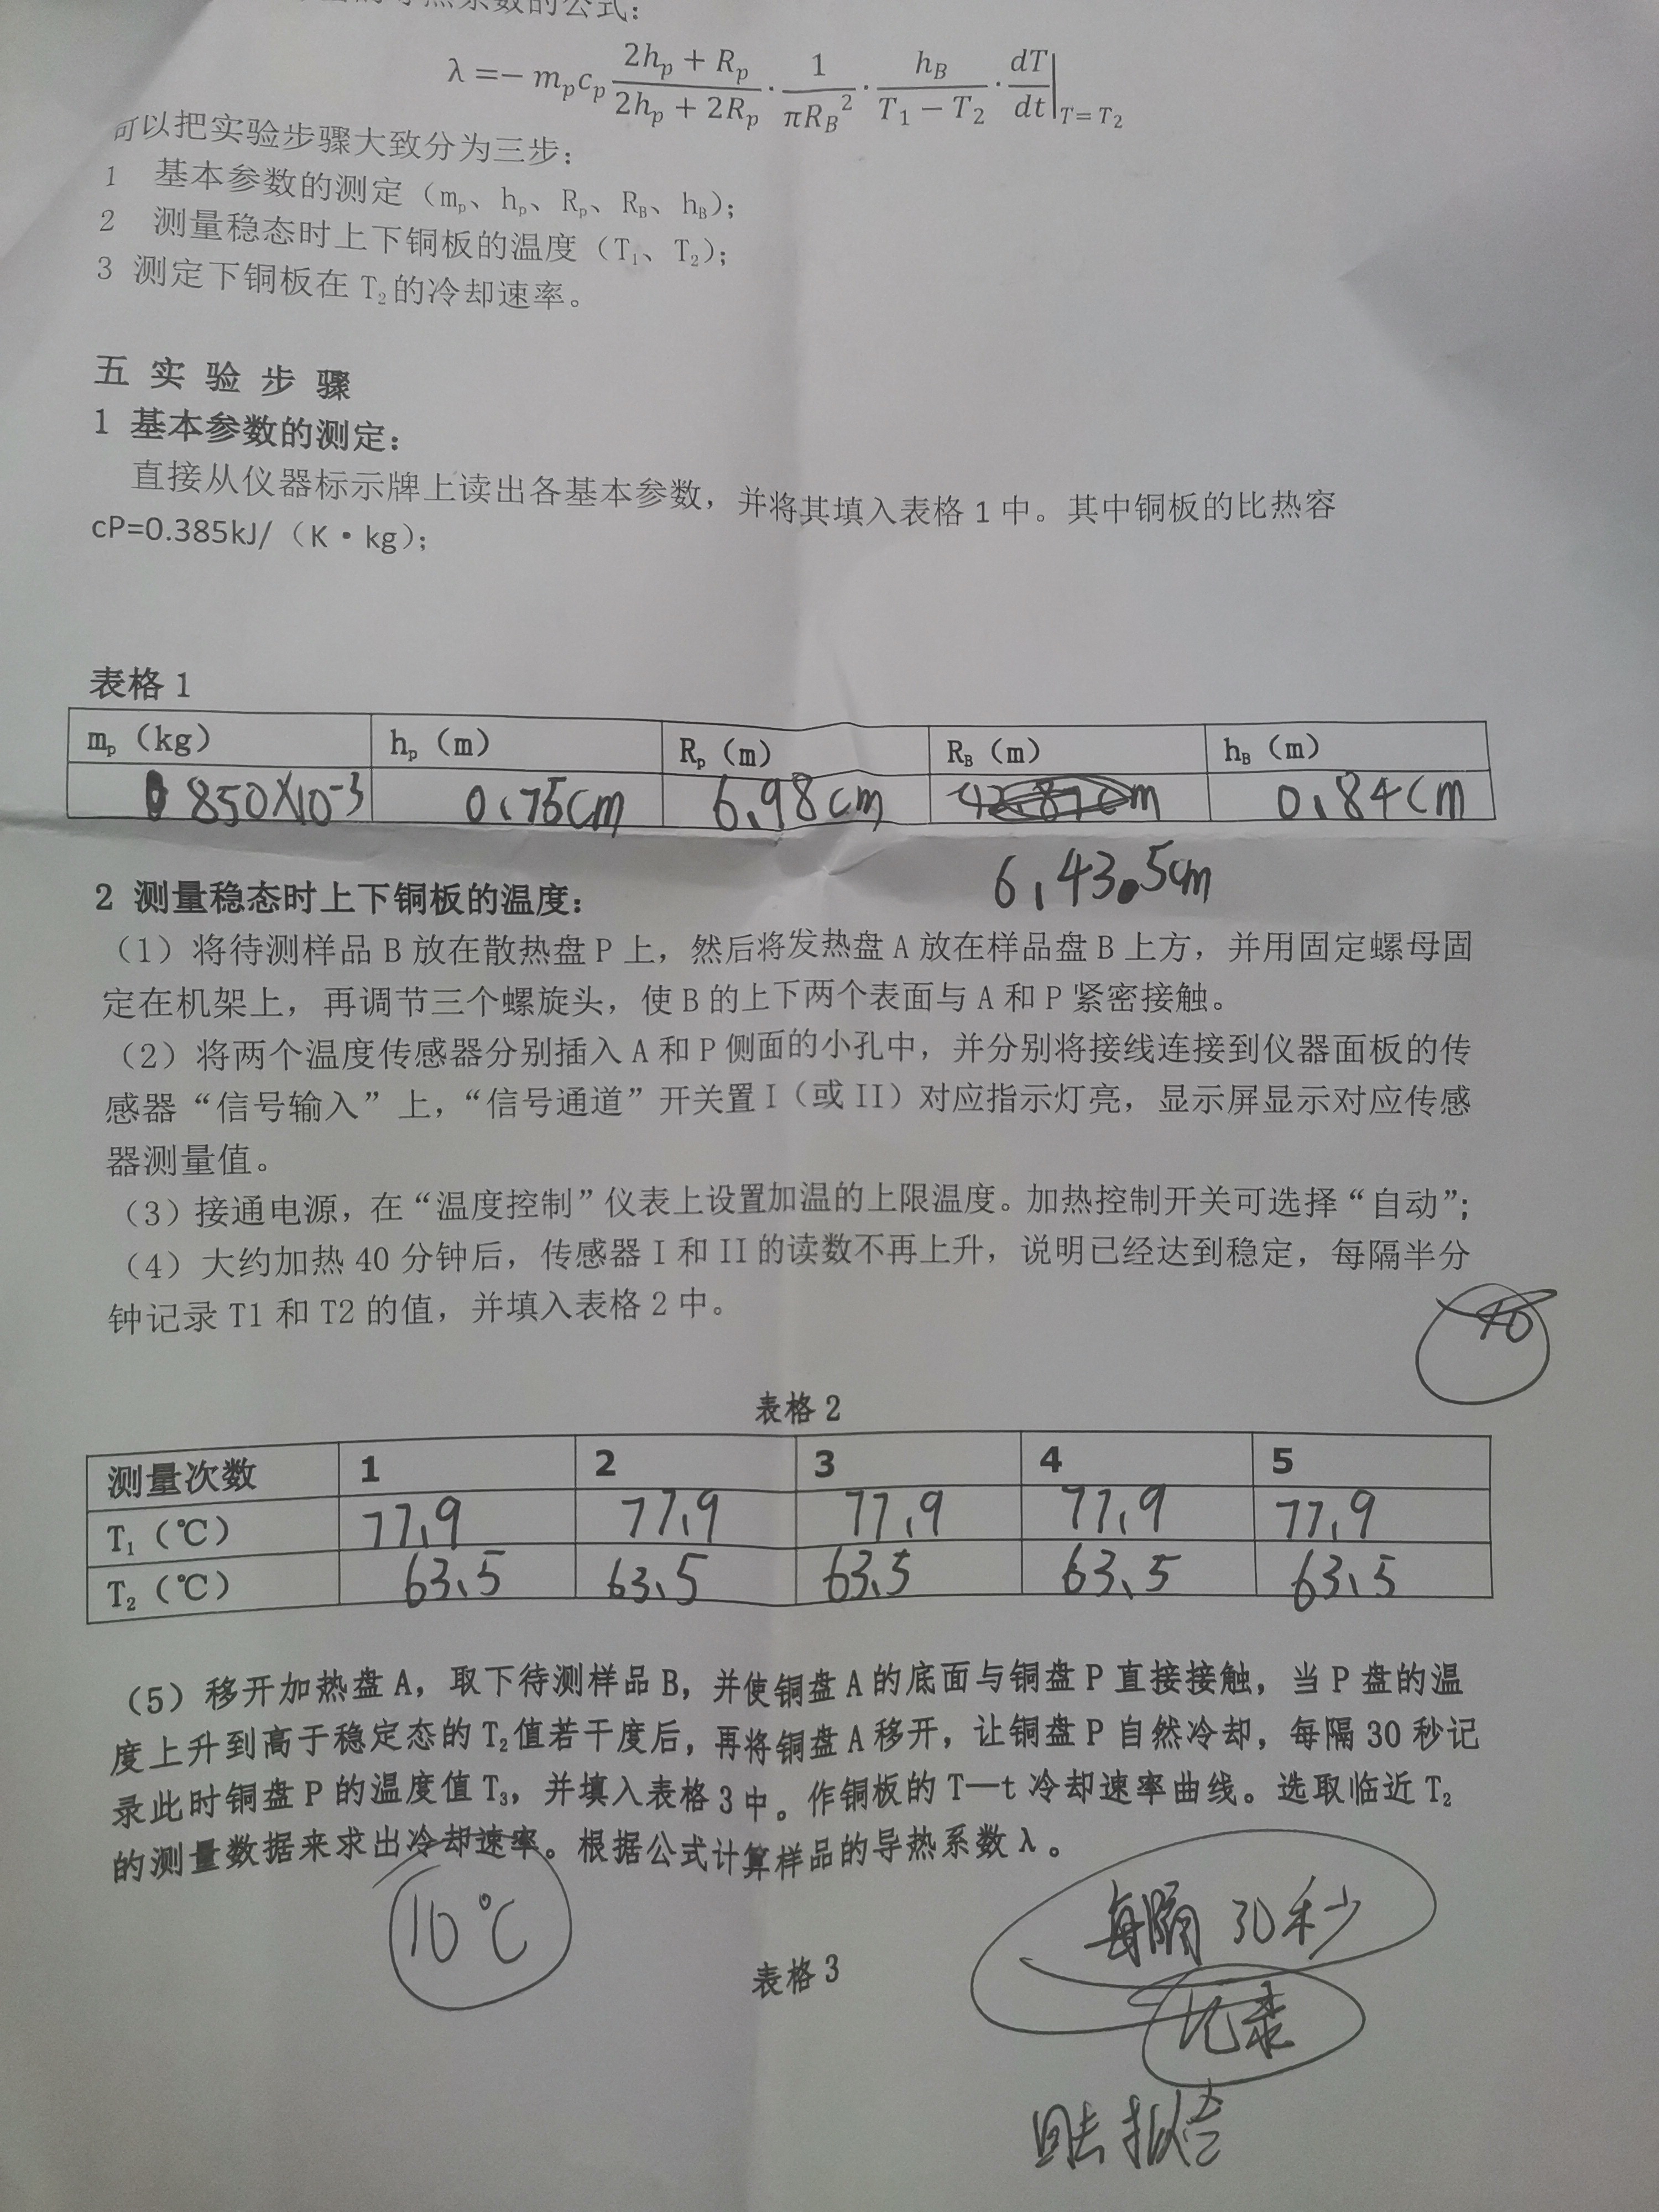 导热系数的公式：
λ =− m_p c_p (2h_p + R_p)/(2h_p + 2R_p) · 1/(πR_B²) · h_B/(T₁ − T₂) · dT/dt|T= T₂
可以把实验步骤大致分为三步：
1 基本参数的测定（mₚ、hₚ、Rₚ、R_B、h_B）；
2 测量稳态时上下铜板的温度（T₁、T₂）；
3 测定下铜板在 T₂的冷却速率。
五 实 验 步 骤
1 基本参数的测定：
直接从仪器标示牌上读出各基本参数，并将其填入表格 1 中。其中铜板的比热容
cP=0.385kJ/（K·kg）；
表格 1
mₚ（kg） hₚ（m） Rₚ（m） R_B（m） h_B（m）
850×10⁻³ 0.75cm 6.98cm 0.84cm
6.43.5cm
2 测量稳态时上下铜板的温度：
（1）将待测样品 B 放在散热盘 P 上，然后将发热盘 A 放在样品盘 B 上方，并用固定螺母固
定在机架上，再调节三个螺旋头，使 B 的上下两个表面与 A 和 P 紧密接触。
（2）将两个温度传感器分别插入 A 和 P 侧面的小孔中，并分别将接线连接到仪器面板的传
感器“信号输入”上，“信号通道”开关置 I（或 II）对应指示灯亮，显示屏显示对应传感
器测量值。
（3）接通电源，在“温度控制”仪表上设置加温的上限温度。加热控制开关可选择“自动”；
（4）大约加热 40 分钟后，传感器 I 和 II 的读数不再上升，说明已经达到稳定，每隔半分
钟记录 T1 和 T2 的值，并填入表格 2 中。
表格 2
测量次数 1 2 3 4 5
T₁（℃） 77.9 77.9 77.9 77.9 77.9
T₂（℃） 63.5 63.5 63.5 63.5 63.5
（5）移开加热盘 A，取下待测样品 B，并使铜盘 A 的底面与铜盘 P 直接接触，当 P 盘的温
度上升到高于稳定态的 T₂值若干度后，再将铜盘 A 移开，让铜盘 P 自然冷却，每隔 30 秒记
录此时铜盘 P 的温度值 T₃，并填入表格 3 中。作铜板的 T—t 冷却速率曲线。选取临近 T₂
的测量数据来求出冷却速率。根据公式计算样品的导热系数 λ 。
10℃
每隔 30秒
表格 3
记录
回去拟合